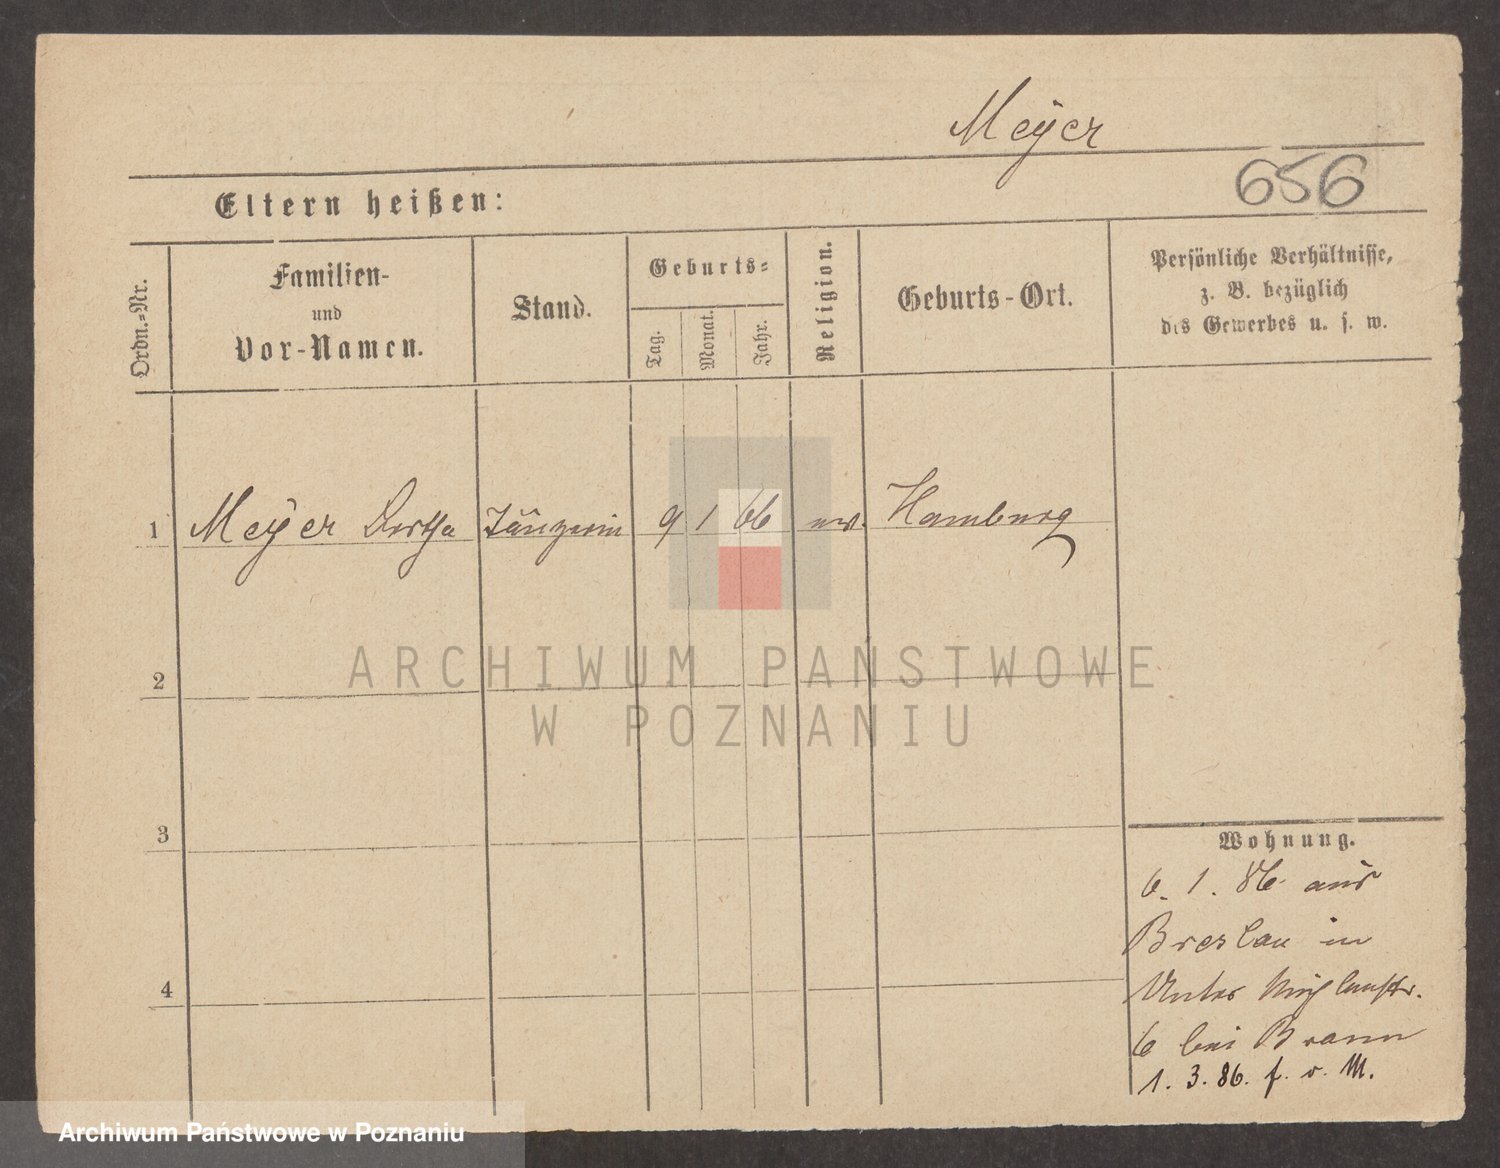 Meÿer
656
Eltern heißen:
Ordn.-Nr.
Familien-
und
Vor-Namen.
Stand.
Geburts-
Tag.
Monat.
Jahr.
Religion.
Geburts-Ort.
Persönliche Verhältnisse,
z. B. bezüglich
des Gewerbes u. s. w.
1 Meÿer Dortha Tänzerin 9 1 66 ev. Hamburg
2
ARCHIWUM PAŃSTWOWE
W POZNANIU
3
4
Wohnung.
6. 1. 86 aus
Breslau in
Unter
6 bei Brann
1. 3. 86. f. v. M.
Archiwum Państwowe w Poznaniu